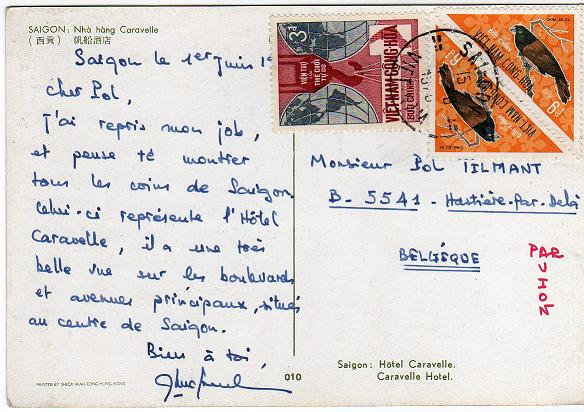 SAIGON: Nhà hàng Caravelle
(西貢) 帆船酒店
Saigon le 1er Juin 1
Cher Pol,
J'ai repris mon job,
et pense te montrer
tous les coins de Saigon.
Celui-ci représente l'Hôtel
Caravelle, il a une très
belle vue sur les boulevards
et avenues principaux, situés
au centre de Saigon.
Bien à toi,
PRINTED BY SHECK WAH TONG HONG KONG
010
3đ
VIỆN TRỢ
THẾ GIỚI
TỰ DO
VIỆT-NAM CỘNG-HÒA
BƯU CHÍNH
VIỆT-NAM CỘNG-HÒA
VIỆT-NAM CỘNG-HÒA
SAIGON
Monsieur Pol TILMANT
B-5541-Hastière-Par-Delà
BELGIQUE
PAR
AVION
Saigon: Hôtel Caravelle.
Caravelle Hotel.